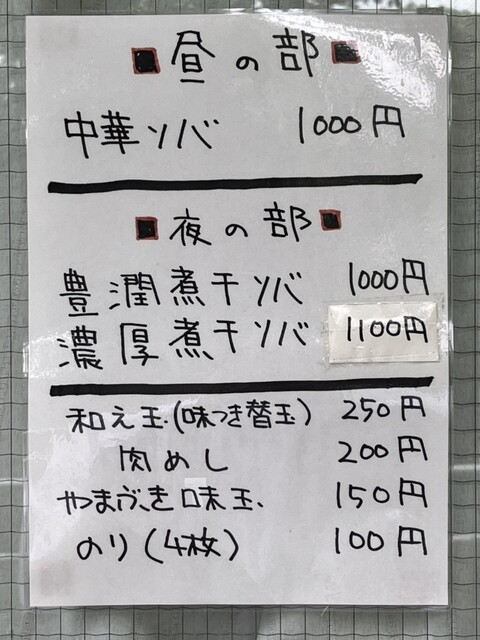 ■昼の部■
中華ソバ 1000円
■夜の部■
豊潤煮干ソバ 1000円
濃厚煮干ソバ 1100円
和え玉(味つき替玉) 250円
肉めし 200円
やまぶき味玉 150円
のり(4枚) 100円